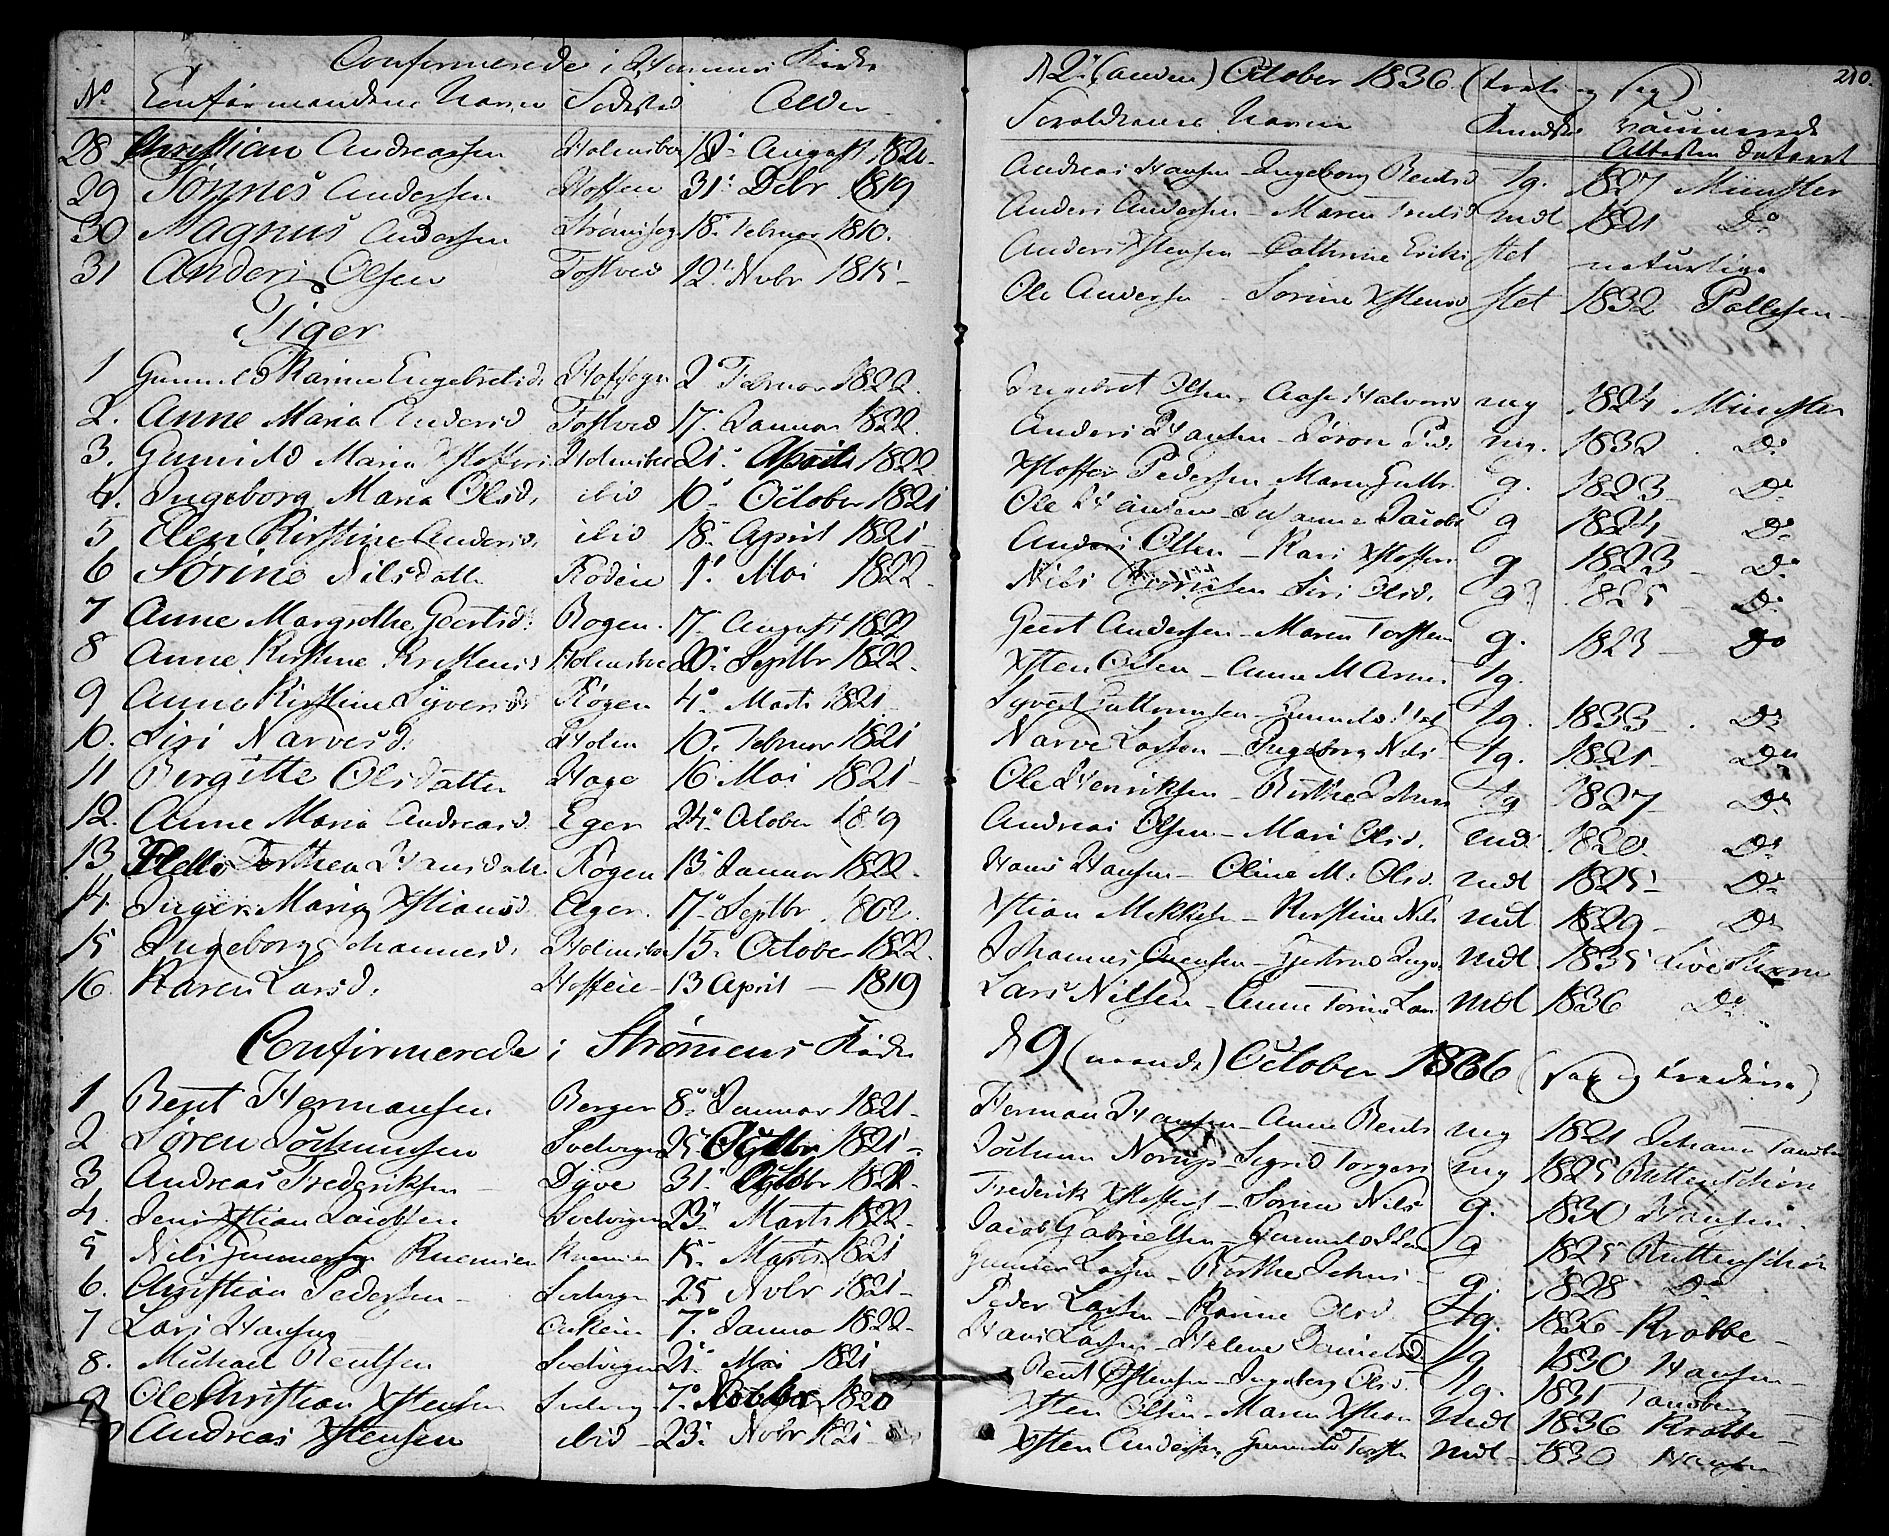 Confirmerede i Hurums Kirke
No Confirmandens Navn Fødested Alder
28 Christian Andreassen Holmsboe 18' August 1821.
29 Tonnes Andersen Hoffen 31' Debr 1819
30 Magnus Andersen 18' Februar 1810.
31 Anders Olsen Tostved 12' Novbr 1815
Piger
1 Gunnild Karine Engebretsd. 2 Februar 1822.
2. Anne Maria Andersd Tostved 17. Januar 1822.
3. Gunnild Maria Xstoffersd Holmsboe 21' April 1822
4. Ingeborg Maria Olsd. ibid 10' October 1821
5 Elen Kirstine Andersd. ibid 18' April 1821
6 Sørine Nilsdatter Rødeie 1' Mai 1822
7 Anne Margrethe Geertsd. Bogen. 17. August 1822
8 Anne Kirstine Kristensd Holmsboe 20' Septbr 1822
9 Anne Kirstine Syversd Røgen 4' Marts 1821
10. Siri Narvesd. Holm 10. Februar 1821
11 Birgitte Olsdatter Hage 16 Mai 1821
12. Anne Maria Andreasd. Eger 24' October 1819
13 Dorthea Hansdatter Røgen 13' Januar 1822.
14. Inger Maria Xstiansd. Eger. 17' Septbr 1802.
15 Ingeborg Johannesd. Holmsboe 15. October 1822.
16. Karen Larsd. Hoffeie 13 April 1819
Confirmerede i Strømmens Kirke
1 Bent Hermansen Berger 8' Januar 1821
2 Søren Jochumsen Svelvigen 25' Octbr 1821
3 Andreas Frederiksen Dyve 31' Octbr 1821.
4. Jens Xstian Jacobsen Svelvigen 23' Marts 1822
5 Nils Gunnersen Knemien 15' Marts 1821
6. Christian Pedersen Svelvigen 25 Novbr 1821
7 Lars Hansen 7' Januar 1822
8. Michael Bentsen Svelvigen 21' Mai 1821
9 Ole Christian Xstensen Svelvig 7' October 1820
10 Andreas Xstensen ibid 23' Novbr 1821
210.
d 2' (anden) October 1836.
Forældrenes Navne Kundskab Vaccinerede
Attesten dateret
Andreas Hansen - Ingeborg Bentsd tg. 1827 Münster
Anders Andersen - Maren Truls mdl 1821 Do
Anders Xstensen - Cathrine Eriks slet naturlige
Ole Andersen - Sørine Xstens slet 1832 Pallesen
Engebret Olsen - Aase Halvorsd mg 1824 Münster
Anders Hansen - Søron Peds. mg. 1832 Do
Xstoffer Pedersen - Maren Guttr. g. 1823 Do
Ole Hansen - Susanne Jacobs g 1824 Do
Anders Olsen - Kari Xstoffers g 1823 Do
Nils - Siri Olsd. g 1825 Do
Geert Andersen - Maren Torsten g. 1823 Do
Xsten Olsen - Anne M Arne tg.
Syvert Guttormsen - Gunnild tg. 1833 Do
Narve Larsen - Ingeborg Nils tg. 1821 Do
Ole Henriksen - Birthe Johns tg 1827 Do
Andreas Olsen - Mari Olsd. mdl 1820. Do
Hans Hansen - Oline M. Olsd. mdl 1825 Do
Xstian Mikkelsen - Kirstine Nils mdl 1829 Do
Johannes - Gjertrud mdl. 1835 Live Thorne
Lars Nilsen - Anne Torine Lars mdl 1836 Do
d 9 (niende) October 1836
Herman Hansen - Anne Bents mg 1821 Johanne Tandberg
Jochum Norup - Sigrid Torgers mg 1825 Ruttenschön
Frederik Xstoffers - Sørine Nils g. 1830 Hansen
Jacob Gabrielsen - Gunnild tg 1825 Ruttenschön
Gunner Larsen - Birthe Johns g. 1828 Do
Peder Larsen - Karine Olsd tg. 1836 Krabbe
Hans Larsen - Helene Danielsd tg 1830 Hansen
Bent Xstensen - Ingeborg Olsd. tg. 1831 Tandberg
Xsten Olsen - Maren Xstian mdl 1836 Krabbe
Xsten Andersen Gunnild Torsten mdl 1830 Hansen